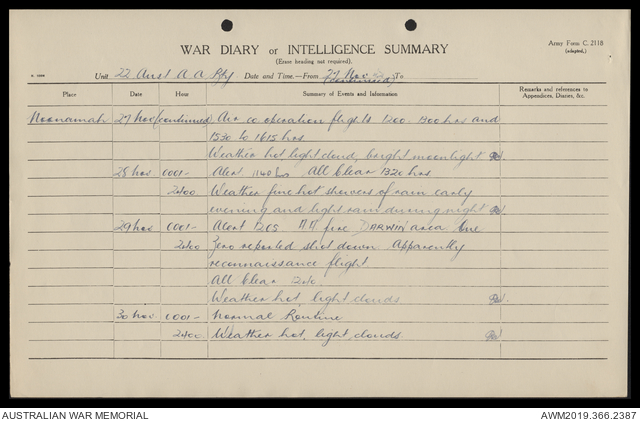 WAR DIARY or INTELLIGENCE SUMMARY
Army Form C. 2118
(adapted.)
(Erase heading not required).
Unit 22 Aust A A Bty Date and Time.—From 27 Nov To
(continued)
Place Date Hour Summary of Events and Information Remarks and references to
Appendices, Diaries, &c.
Noonamah 27 Nov (continued) Air co operation flights 1200 - 1300 hrs and
1530 to 1615 hrs
Weather hot, light cloud, bright moonlight
28 Nov. 0001- Alert 1140 hrs All Clear 1320 hrs
2400 Weather fine hot showers of rain early
evening and light rain during night
29 Nov 0001- Alert 1205 AA fire DARWIN area One
2400 Zero reported shot down. Apparently
reconnaissance flight
All Clear
Weather hot, light clouds
30 Nov. 0001- Normal Routine
2400 Weather hot, light clouds.
AUSTRALIAN WAR MEMORIAL
AWM2019.366.2387